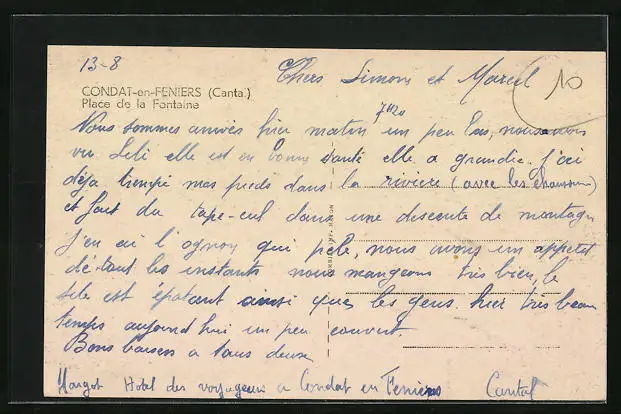 13-8
Chers Simone et Marcel
10
CONDAT-en-FENIERS (Cantal)
Place de la Fontaine
7h20
Nous sommes arrivés hier matin un peu las, nous avons
vu Lili elle est en bonne santé elle a grandie. j'ai
déja trempé mes pieds dans la rivière (avec les chaussures)
et fait du tape-cul dans une descente de montagne
j'en ai l'ognon qui pele, nous avons un appetit
de tout les instants nous mangeons très bien, le
site est épatant ainsi que les gens. hier très beau
temps aujourd'hui un peu couvert.
Bons baisers a tous deux
Margot Hotel des voyageurs a Condat en Feniers Cantal